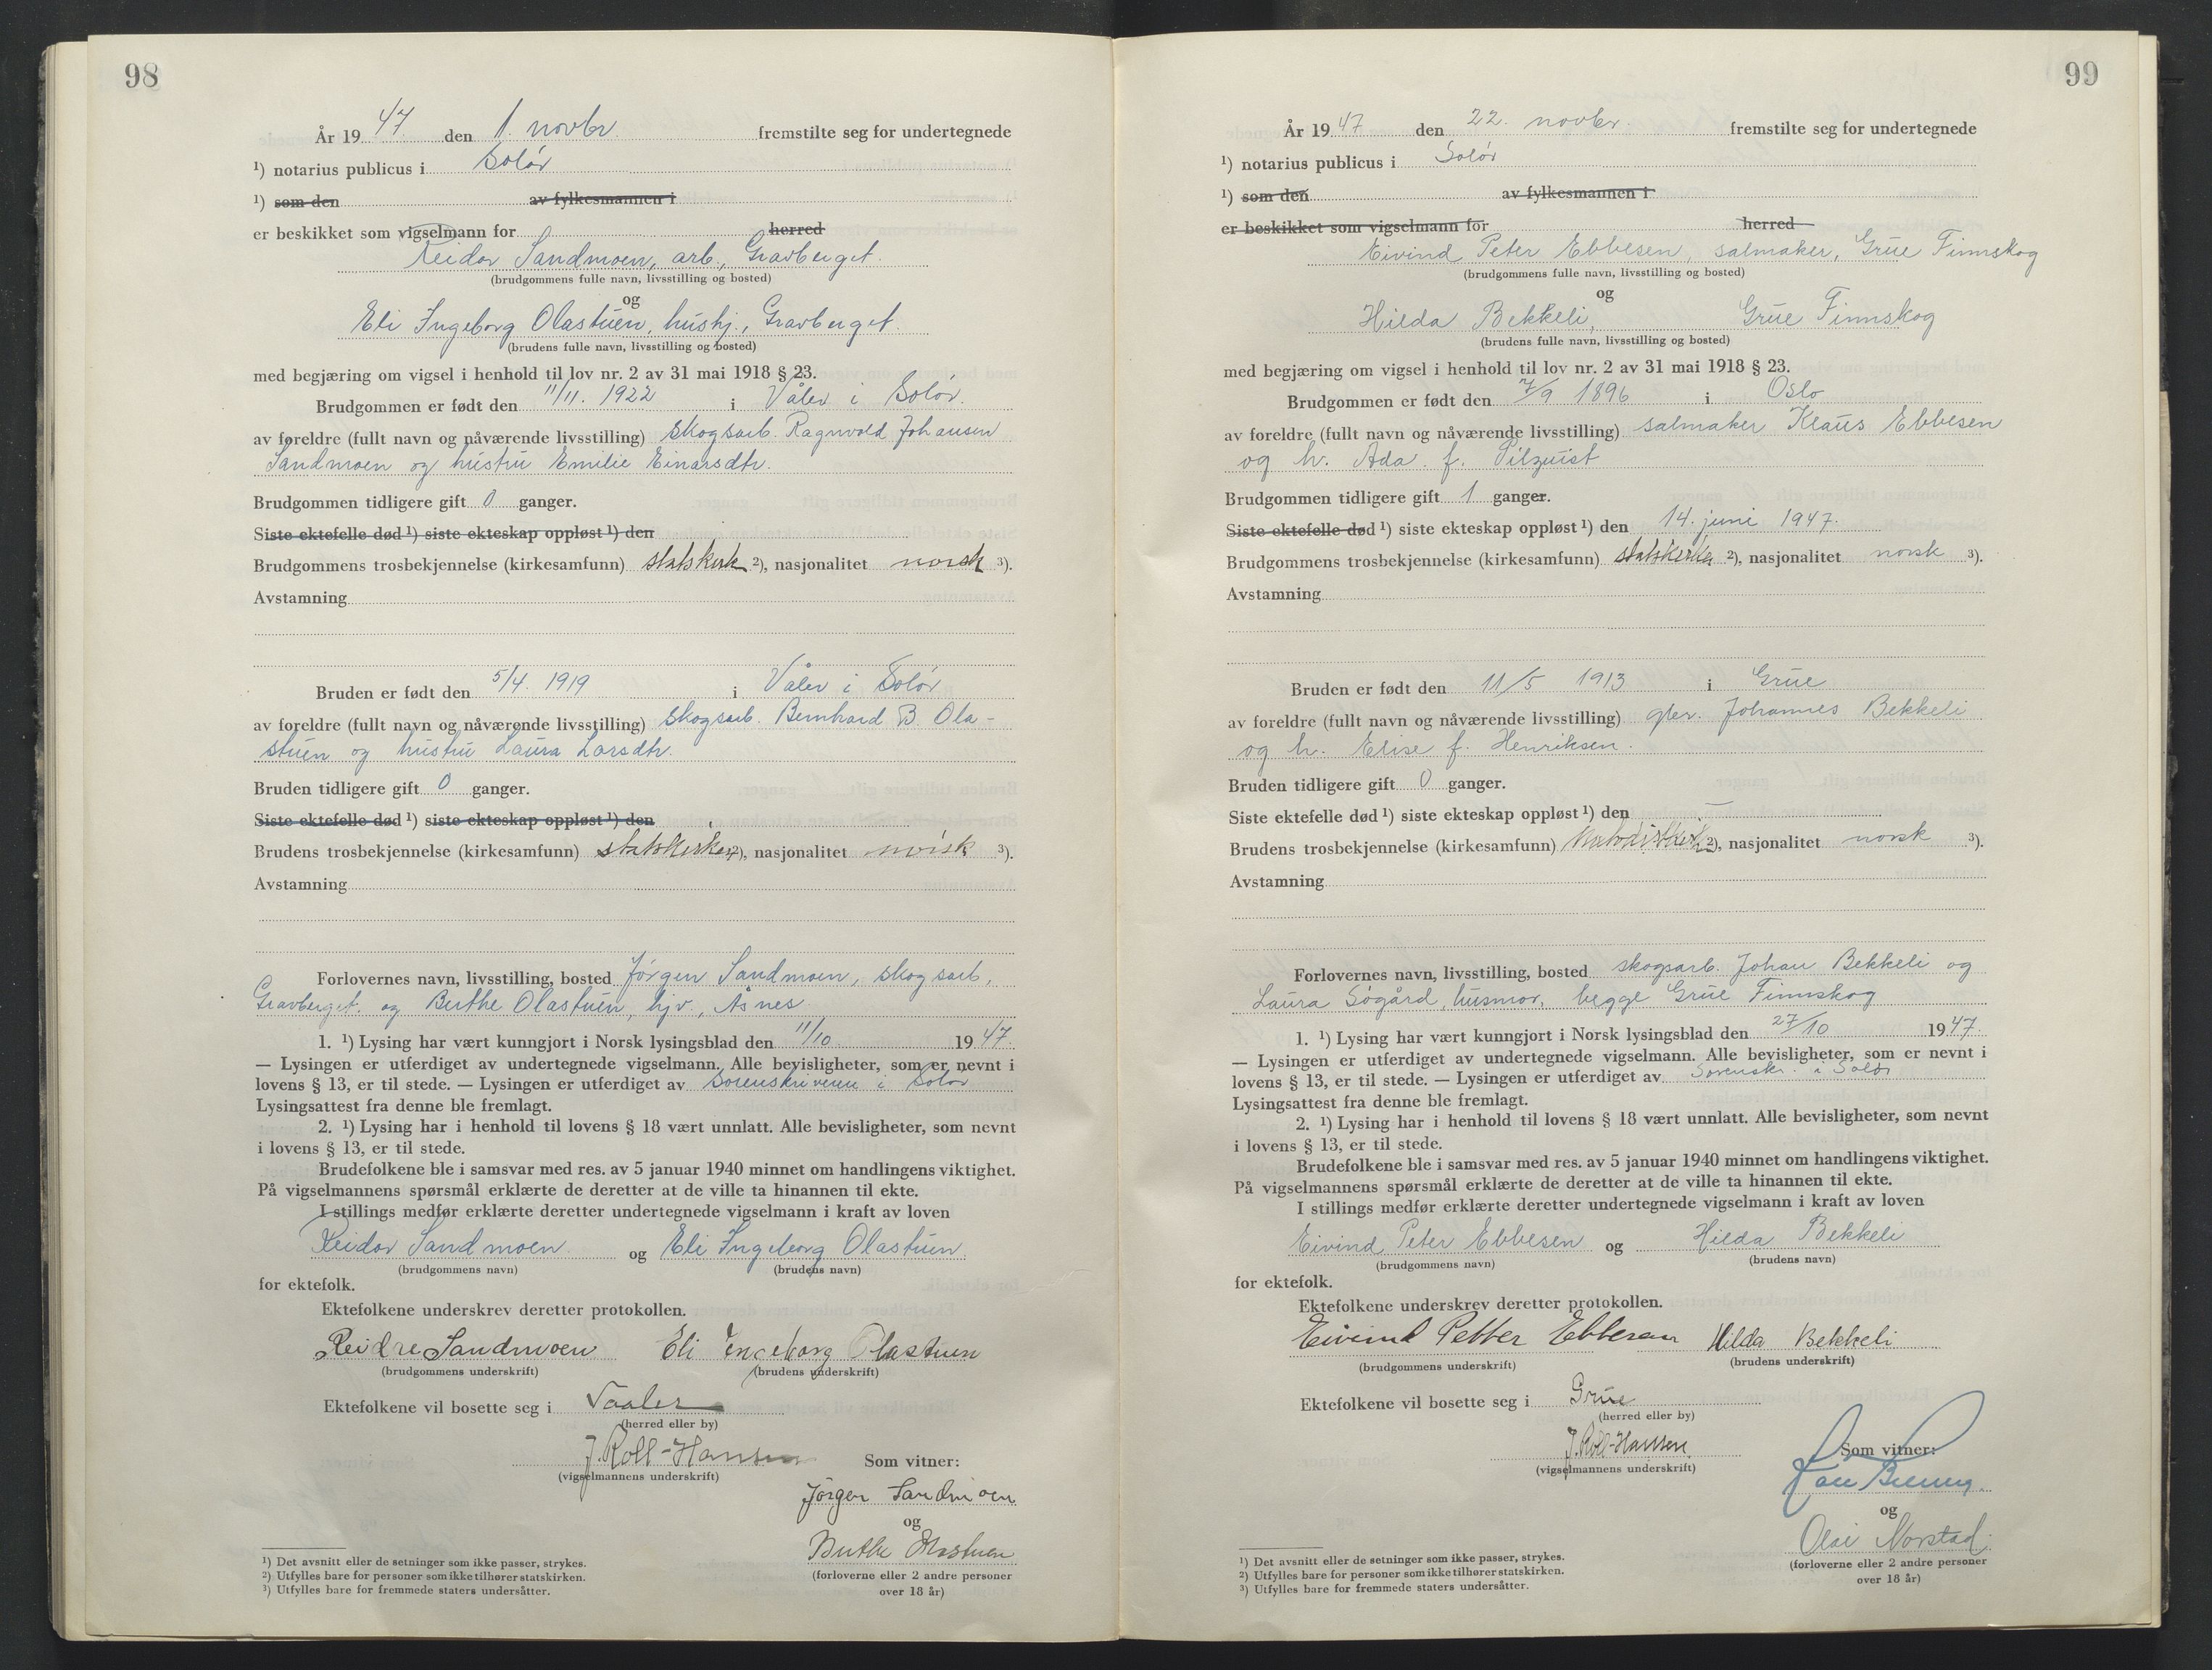 98
År 19 47 den 1. novbr. fremstilte seg for undertegnede
¹) notarius publicus i Solør
¹) som den av fylkesmannen i
er beskikket som vigselmann for herred
Reidar Sandmoen, arb., Gravberget.
(brudgommens fulle navn, livsstilling og bosted)
og
Eli Ingeborg Olastuen, hushj., Gravberget.
(brudens fulle navn, livsstilling og bosted)
med begjæring om vigsel i henhold til lov nr. 2 av 31 mai 1918 § 23.
Brudgommen er født den 11/11. 1922 i Våler i Solør.
av foreldre (fullt navn og nåværende livsstilling) skogsarb. Ragnvald Johansen
Sandmoen og hustru Emilie Einarsdtr.
Brudgommen tidligere gift 0 ganger.
Siste ektefelle død ¹) siste ekteskap oppløst ¹) den
Brudgommens trosbekjennelse (kirkesamfunn) statskirk ²), nasjonalitet norsk ³).
Avstamning
Bruden er født den 5/4. 1919 i Våler i Solør
av foreldre (fullt navn og nåværende livsstilling) skogsarb. Bernhard B. Ola-
stuen og hustru Laura Larsdtr.
Bruden tidligere gift 0 ganger.
Siste ektefelle død ¹) siste ekteskap oppløst ¹) den
Brudens trosbekjennelse (kirkesamfunn) statskirken ²), nasjonalitet norsk ³).
Avstamning
Forlovernes navn, livsstilling, bosted Jørgen Sandmoen, skogsarb.,
Gravberget. og Berthe Olastuen, hjv., Åsnes.
1. ¹) Lysing har vært kunngjort i Norsk lysingsblad den 11/10 1947.
— Lysingen er utferdiget av undertegnede vigselmann. Alle bevisligheter, som er nevnt i
lovens § 13, er til stede. — Lysingen er utferdiget av sorenskriveren i Solør
Lysingsattest fra denne ble fremlagt.
2. ¹) Lysing har i henhold til lovens § 18 vært unnlatt. Alle bevisligheter, som nevnt
i lovens § 13, er til stede.
Brudefolkene ble i samsvar med res. av 5 januar 1940 minnet om handlingens viktighet.
På vigselmannens spørsmål erklærte de deretter at de ville ta hinannen til ekte.
I stillings medfør erklærte deretter undertegnede vigselmann i kraft av loven
Reidar Sandmoen og Eli Ingeborg Olastuen
(brudgommens navn) (brudens navn)
for ektefolk.
Ektefolkene underskrev deretter protokollen.
Reidar Sandmoen Eli Ingeborg Olastuen
(brudgommens underskrift) (brudens underskrift)
Ektefolkene vil bosette seg i Vaaler
(herred eller by)
J. Roll-Hansen Som vitner:
(vigselmannens underskrift)
Jörgen Sandmoen
og
Berthe Olastuen
(forloverne eller 2 andre personer
over 18 år)
¹) Det avsnitt eller de setninger som ikke passer, strykes.
²) Utfylles bare for personer som ikke tilhører statskirken.
³) Utfylles bare for fremmede staters undersåtter.
99
År 19 47 den 22. novbr. fremstilte seg for undertegnede
¹) notarius publicus i Solør
¹) som den av fylkesmannen i
er beskikket som vigselmann for herred
Eivind Peter Ebbesen, salmaker, Grue Finnskog
(brudgommens fulle navn, livsstilling og bosted)
og
Hilda Bekkeli, Grue Finnskog
(brudens fulle navn, livsstilling og bosted)
med begjæring om vigsel i henhold til lov nr. 2 av 31 mai 1918 § 23.
Brudgommen er født den 7/9 1896 i Oslo
av foreldre (fullt navn og nåværende livsstilling) salmaker Klaus Ebbesen
og h. Ada. f. Pilquist
Brudgommen tidligere gift 1 ganger.
Siste ektefelle død ¹) siste ekteskap oppløst ¹) den 14. juni 1947.
Brudgommens trosbekjennelse (kirkesamfunn) statskirke ²), nasjonalitet norsk ³).
Avstamning
Bruden er født den 11/5 1913 i Grue
av foreldre (fullt navn og nåværende livsstilling) gbr. Johannes Bekkeli
og h. Elise f. Henriksen.
Bruden tidligere gift 0 ganger.
Siste ektefelle død ¹) siste ekteskap oppløst ¹) den —
Brudens trosbekjennelse (kirkesamfunn) ²), nasjonalitet norsk ³).
Avstamning
Forlovernes navn, livsstilling, bosted skogsarb. Johan Bekkeli og
Laura Sögård, husmor, begge Grue Finnskog
1. ¹) Lysing har vært kunngjort i Norsk lysingsblad den 27/10 1947.
— Lysingen er utferdiget av undertegnede vigselmann. Alle bevisligheter, som er nevnt i
lovens § 13, er til stede. — Lysingen er utferdiget av Sorenskr. i Solør
Lysingsattest fra denne ble fremlagt.
2. ¹) Lysing har i henhold til lovens § 18 vært unnlatt. Alle bevisligheter, som nevnt
i lovens § 13, er til stede.
Brudefolkene ble i samsvar med res. av 5 januar 1940 minnet om handlingens viktighet.
På vigselmannens spørsmål erklærte de deretter at de ville ta hinannen til ekte.
I stillings medfør erklærte deretter undertegnede vigselmann i kraft av loven
Eivind Peter Ebbesen og Hilda Bekkeli
(brudgommens navn) (brudens navn)
for ektefolk.
Ektefolkene underskrev deretter protokollen.
Eivind Petter Ebbesen Hilda Bekkeli
(brudgommens underskrift) (brudens underskrift)
Ektefolkene vil bosette seg i Grue
(herred eller by)
J. Roll-Hansen Som vitner:
(vigselmannens underskrift)
og
Norstad.
(forloverne eller 2 andre personer
over 18 år)
¹) Det avsnitt eller de setninger som ikke passer, strykes.
²) Utfylles bare for personer som ikke tilhører statskirken.
³) Utfylles bare for fremmede staters undersåtter.